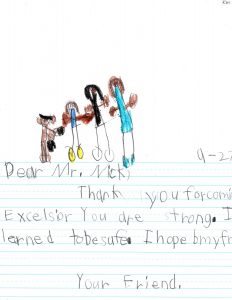 9-27
Dear Mr. Nick,
Thank you for comi
Excelsior You are strong. I
learned to be safe. I hope b my f
Your Friend.